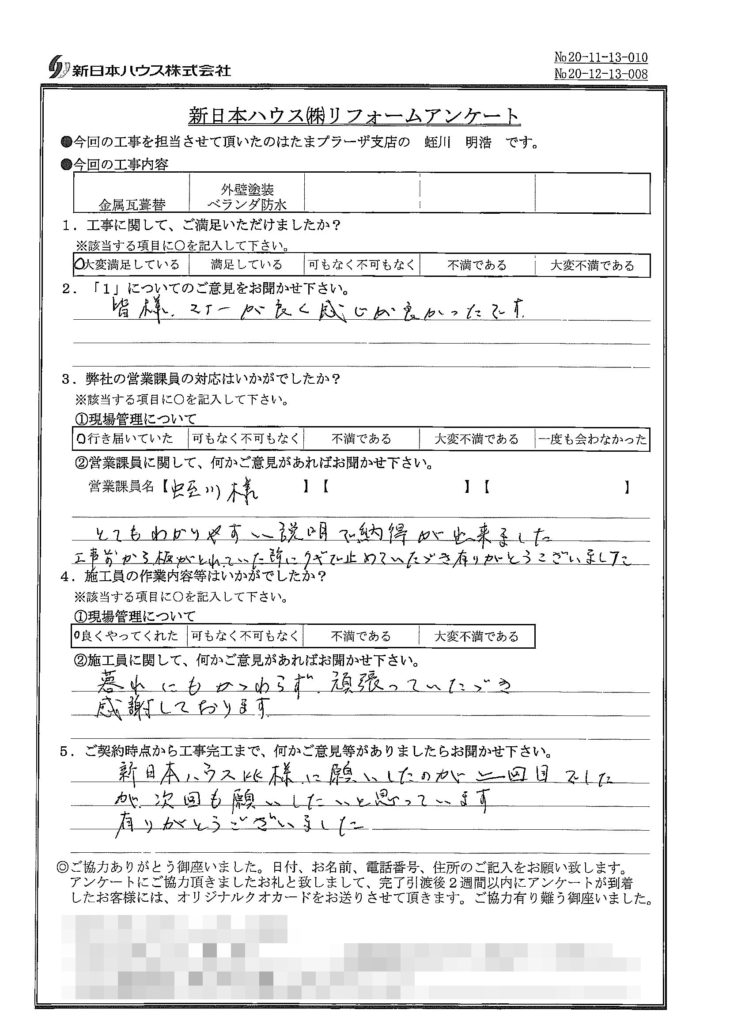 新日本ハウス株式会社
№20-11-13-010
№20-12-13-008
新日本ハウス㈱リフォームアンケート
●今回の工事を担当させて頂いたのはたまプラーザ支店の 蛭川 明浩 です。
●今回の工事内容
金属瓦葺替 外壁塗装 ベランダ防水
1．工事に関して、ご満足いただけましたか？
※該当する項目に○を記入して下さい。
○大変満足している 満足している 可もなく不可もなく 不満である 大変不満である
2．「1」についてのご意見をお聞かせ下さい。
皆様、 が良く感じが良かったです。
3．弊社の営業課員の対応はいかがでしたか？
※該当する項目に○を記入して下さい。
①現場管理について
○行き届いていた 可もなく不可もなく 不満である 大変不満である 一度も会わなかった
②営業課員に関して、何かご意見があればお聞かせ下さい。
営業課員名【蛭川様 】【 】【 】
とてもわかりやすい説明で納得が出来ました
工事前から板がとれていた所にクギで止めていただき有りがとうございました
4．施工員の作業内容等はいかがでしたか？
※該当する項目に○を記入して下さい。
①現場管理について
○良くやってくれた 可もなく不可もなく 不満である 大変不満である
②施工員に関して、何かご意見があればお聞かせ下さい。
暮れにもかかわらず、頑張っていただき
感謝しております。
5．ご契約時点から工事完工まで、何かご意見等がありましたらお聞かせ下さい。
新日本ハウスKK様に願いしたのが二回目でした
が、次回も願いしたいと思っています
有りがとうございました
◎ご協力ありがとう御座いました。日付、お名前、電話番号、住所のご記入をお願い致します。
アンケートにご協力頂きましたお礼と致しまして、完了引渡後2週間以内にアンケートが到着
したお客様には、オリジナルクオカードをお送りさせて頂きます。ご協力有り難う御座いました。